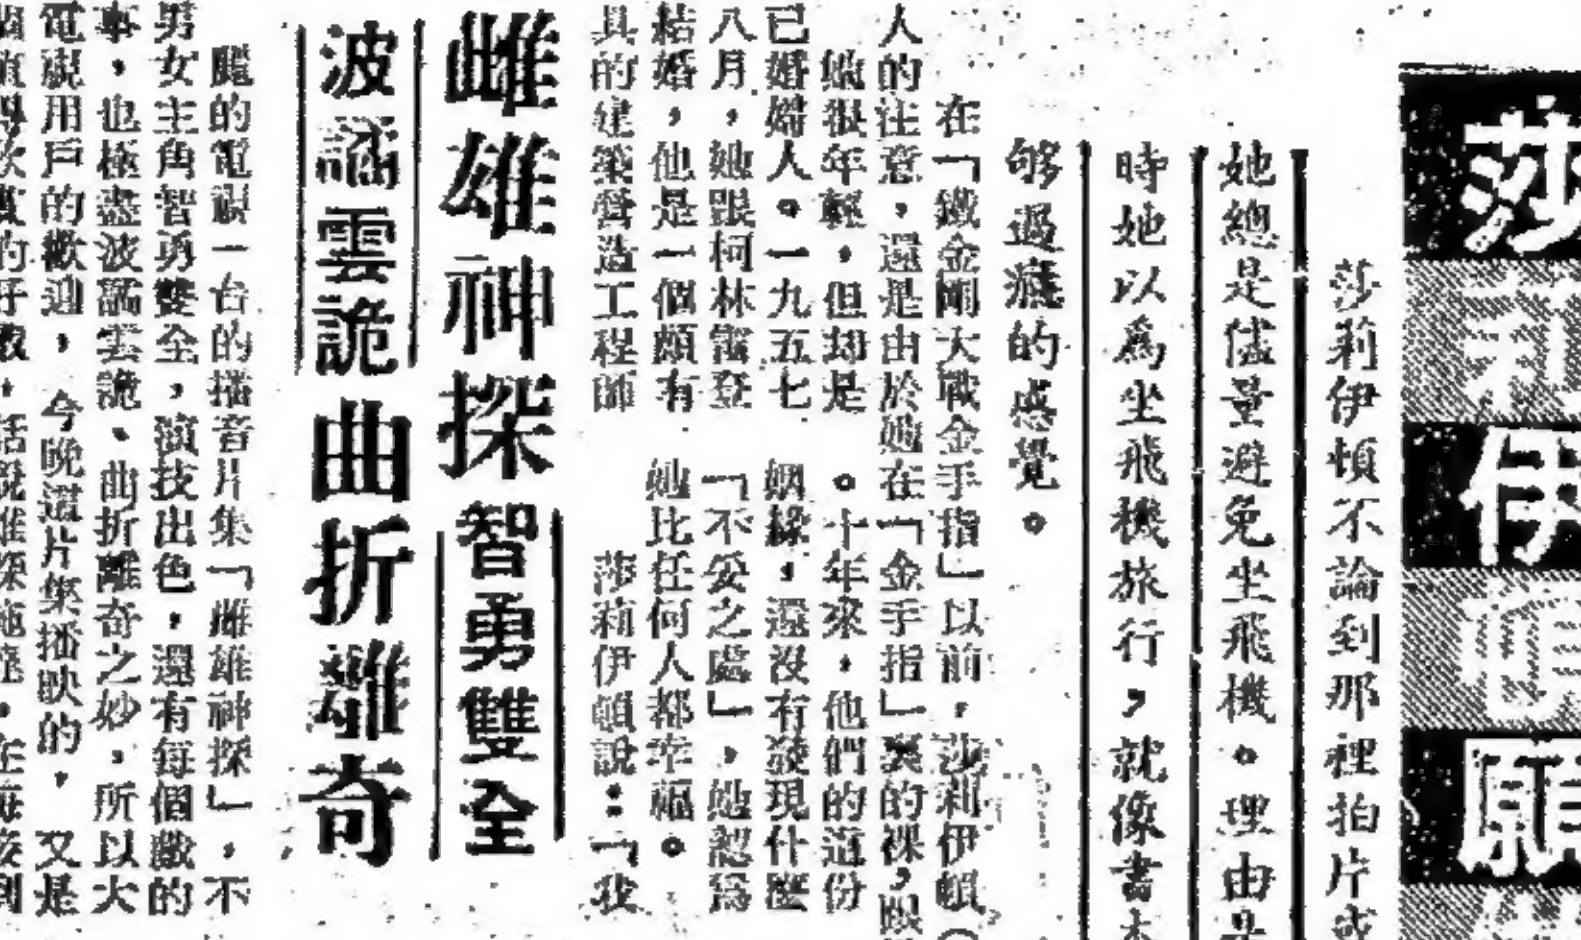 莎莉伊
莎莉伊頓不論到那裡拍片或
她總是儘量避免坐飛機。理由是
時她以爲坐飛機旅行，就像書本
够過癮的感覺。
在「鐵金剛大戰金手指」以前，莎莉伊頓（
人的注意，還是由於她在「金手指」裏的裸，眼
她很年輕，但却是
已婚婦人。一九五七
八月，她跟柯林雷登
結婚，他是一個頗有
具的建築營造工程師
。十年來，他們的這份
姻緣，還沒有發現什麼
「不妥之處」，她認爲
她比任何人都幸福。
莎莉伊頓說：「我
雌雄神探智勇雙全
波譎雲詭曲折離奇
麗的電視一台的播音片集「雌雄神探」，不
男女主角智勇雙全，演技出色，還有每個戲的
事，也極盡波譎雲詭、曲折離奇之妙，所以大
電視用戶的歡迎，今晚這片集播映的，又是